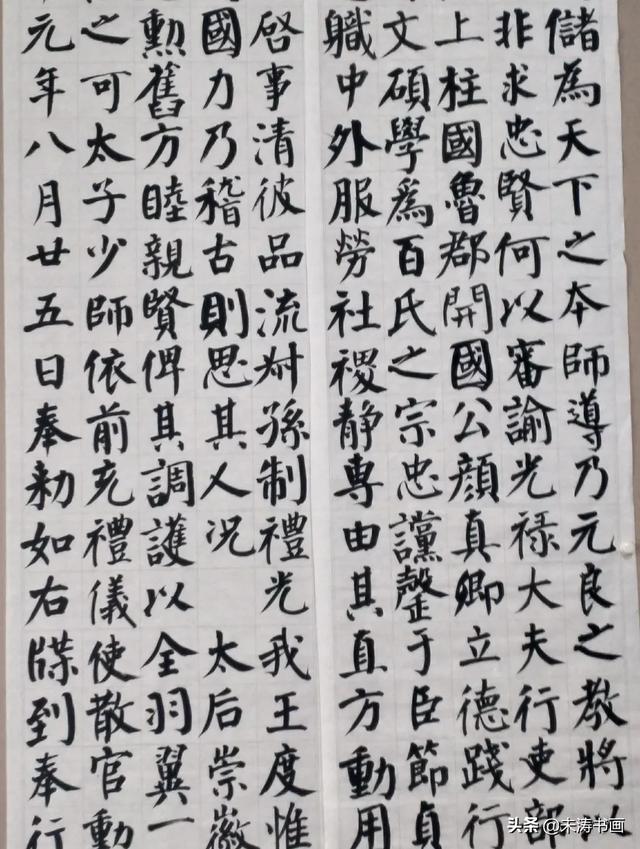 儲為天下之本師導乃元良之教將以
非求忠賢何以審諭光祿大夫行吏部
上柱國魯郡開國公顏真卿立德踐行
文碩學爲百氏之宗忠讜罄于臣節貞
軄中外服勞社稷静專由其直方動用
啓事清彼品流叔孫制禮光我王度惟
國力乃稽古則思其人況 太后崇徽
勲舊方睦親賢俾其調護以全羽翼一
之可太子少師依前充禮儀使散官勲
元年八月廿五日奉勅如右牒到奉行
头条 @未涛书画